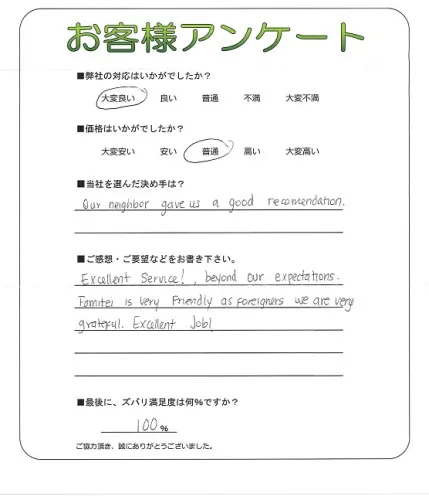 お客様アンケート
■弊社の対応はいかがでしたか？
大変良い 良い 普通 不満 大変不満
■価格はいかがでしたか？
大変安い 安い 普通 高い 大変高い
■当社を選んだ決め手は？
Our neighbor gave us a good recomendation.
■ご感想・ご要望などをお書き下さい。
Excellent Service!, beyond our expectations.
is Very Friendly as Foreigners we are very
grateful. Excellent Job!
■最後に、ズバリ満足度は何％ですか？
100％
ご協力頂き、誠にありがとうございました。